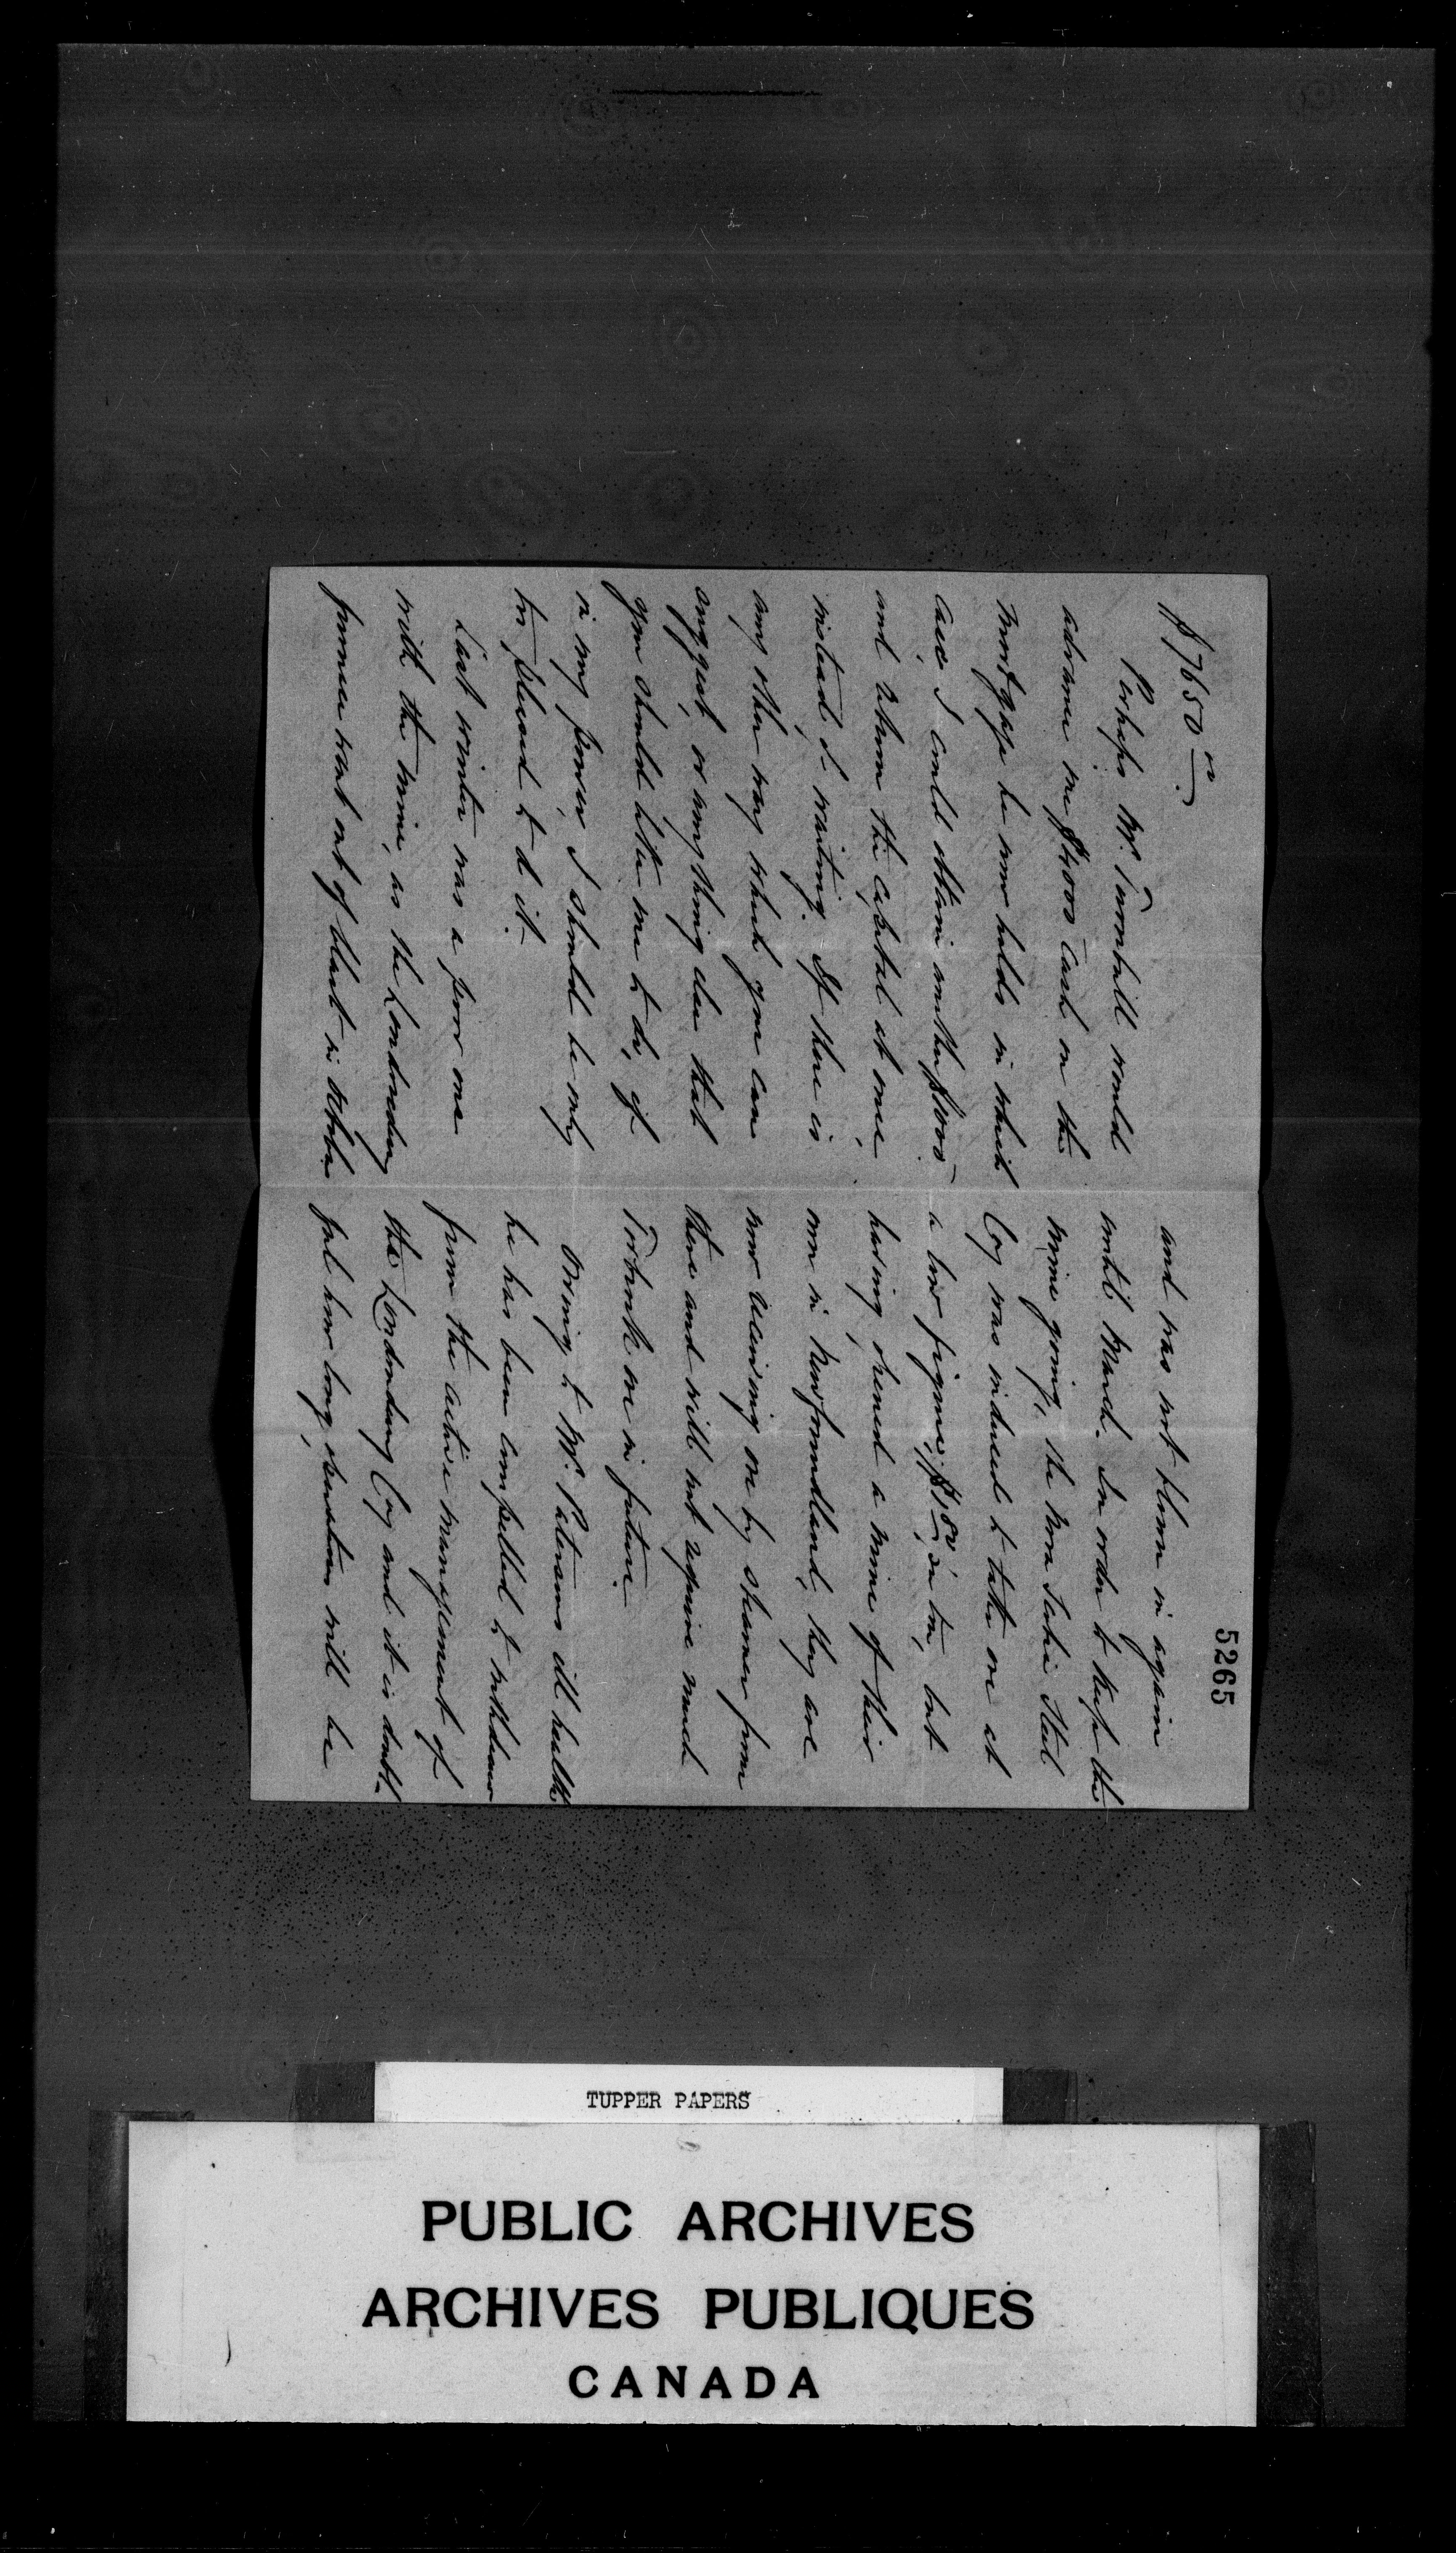 5265
$7650.00
Perhaps Mr. Turnbull would
advance me $4000 cash on the
mortgage he now holds in which
case I could obtain another $1000
and return the capital at once,
instead of waiting. If there is
any other way which you can
suggest, or any thing else that
you should like me to do, if
in my power, I should be only
too pleased to do it.
Last winter was a poor one
with the mine, as the Londonderry
furnace went out of blast in
and was not blown in again
until March. In order to keep the
mine going, the Nova Scotia Steel
Coy was induced to take ore at
a low figure, $1.80 a ton, but
having opened a mine of their
own in Newfoundland, they are
now receiving ore by steamer from
there and will not require much
Torbrook ore in future.
Owing to Mr. Paterson's ill health
he has been compelled to withdraw
from the active management of
the Londonderry Coy and it is doubt-
ful how long operations will be
TUPPER PAPERS
PUBLIC ARCHIVES
ARCHIVES PUBLIQUES
CANADA